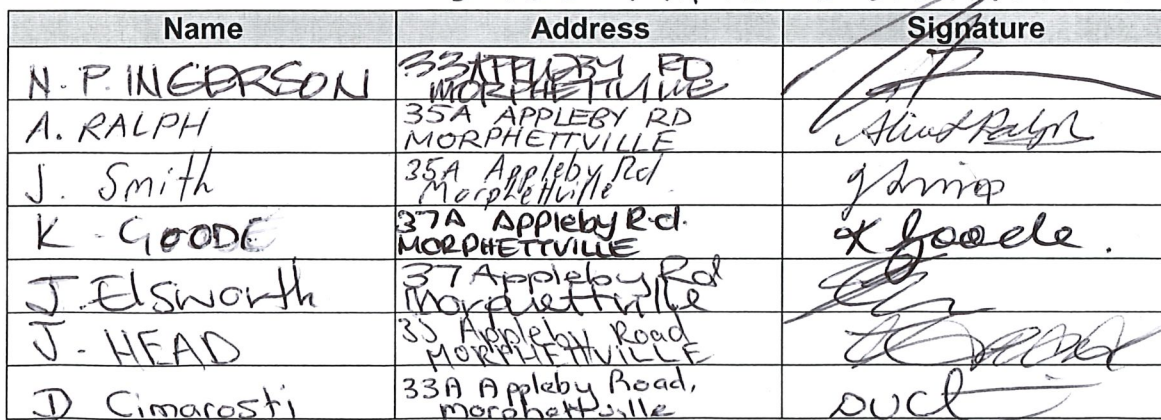 Name Address Signature
N. P. INGERSON 33 APPLEBY RD
MORPHETTVILLE
A. RALPH 35A APPLEBY RD
MORPHETTVILLE
J. Smith 35A Appleby Rd
Morphettville
K GOODE 37A Appleby Rd.
MORPHETTVILLE K Goode.
J. Elsworth 37 Appleby Rd
Morphettville
J. HEAD 35 Appleby Road
MORPHETTVILLE
D Cimarosti 33A Appleby Road,
Morphettville